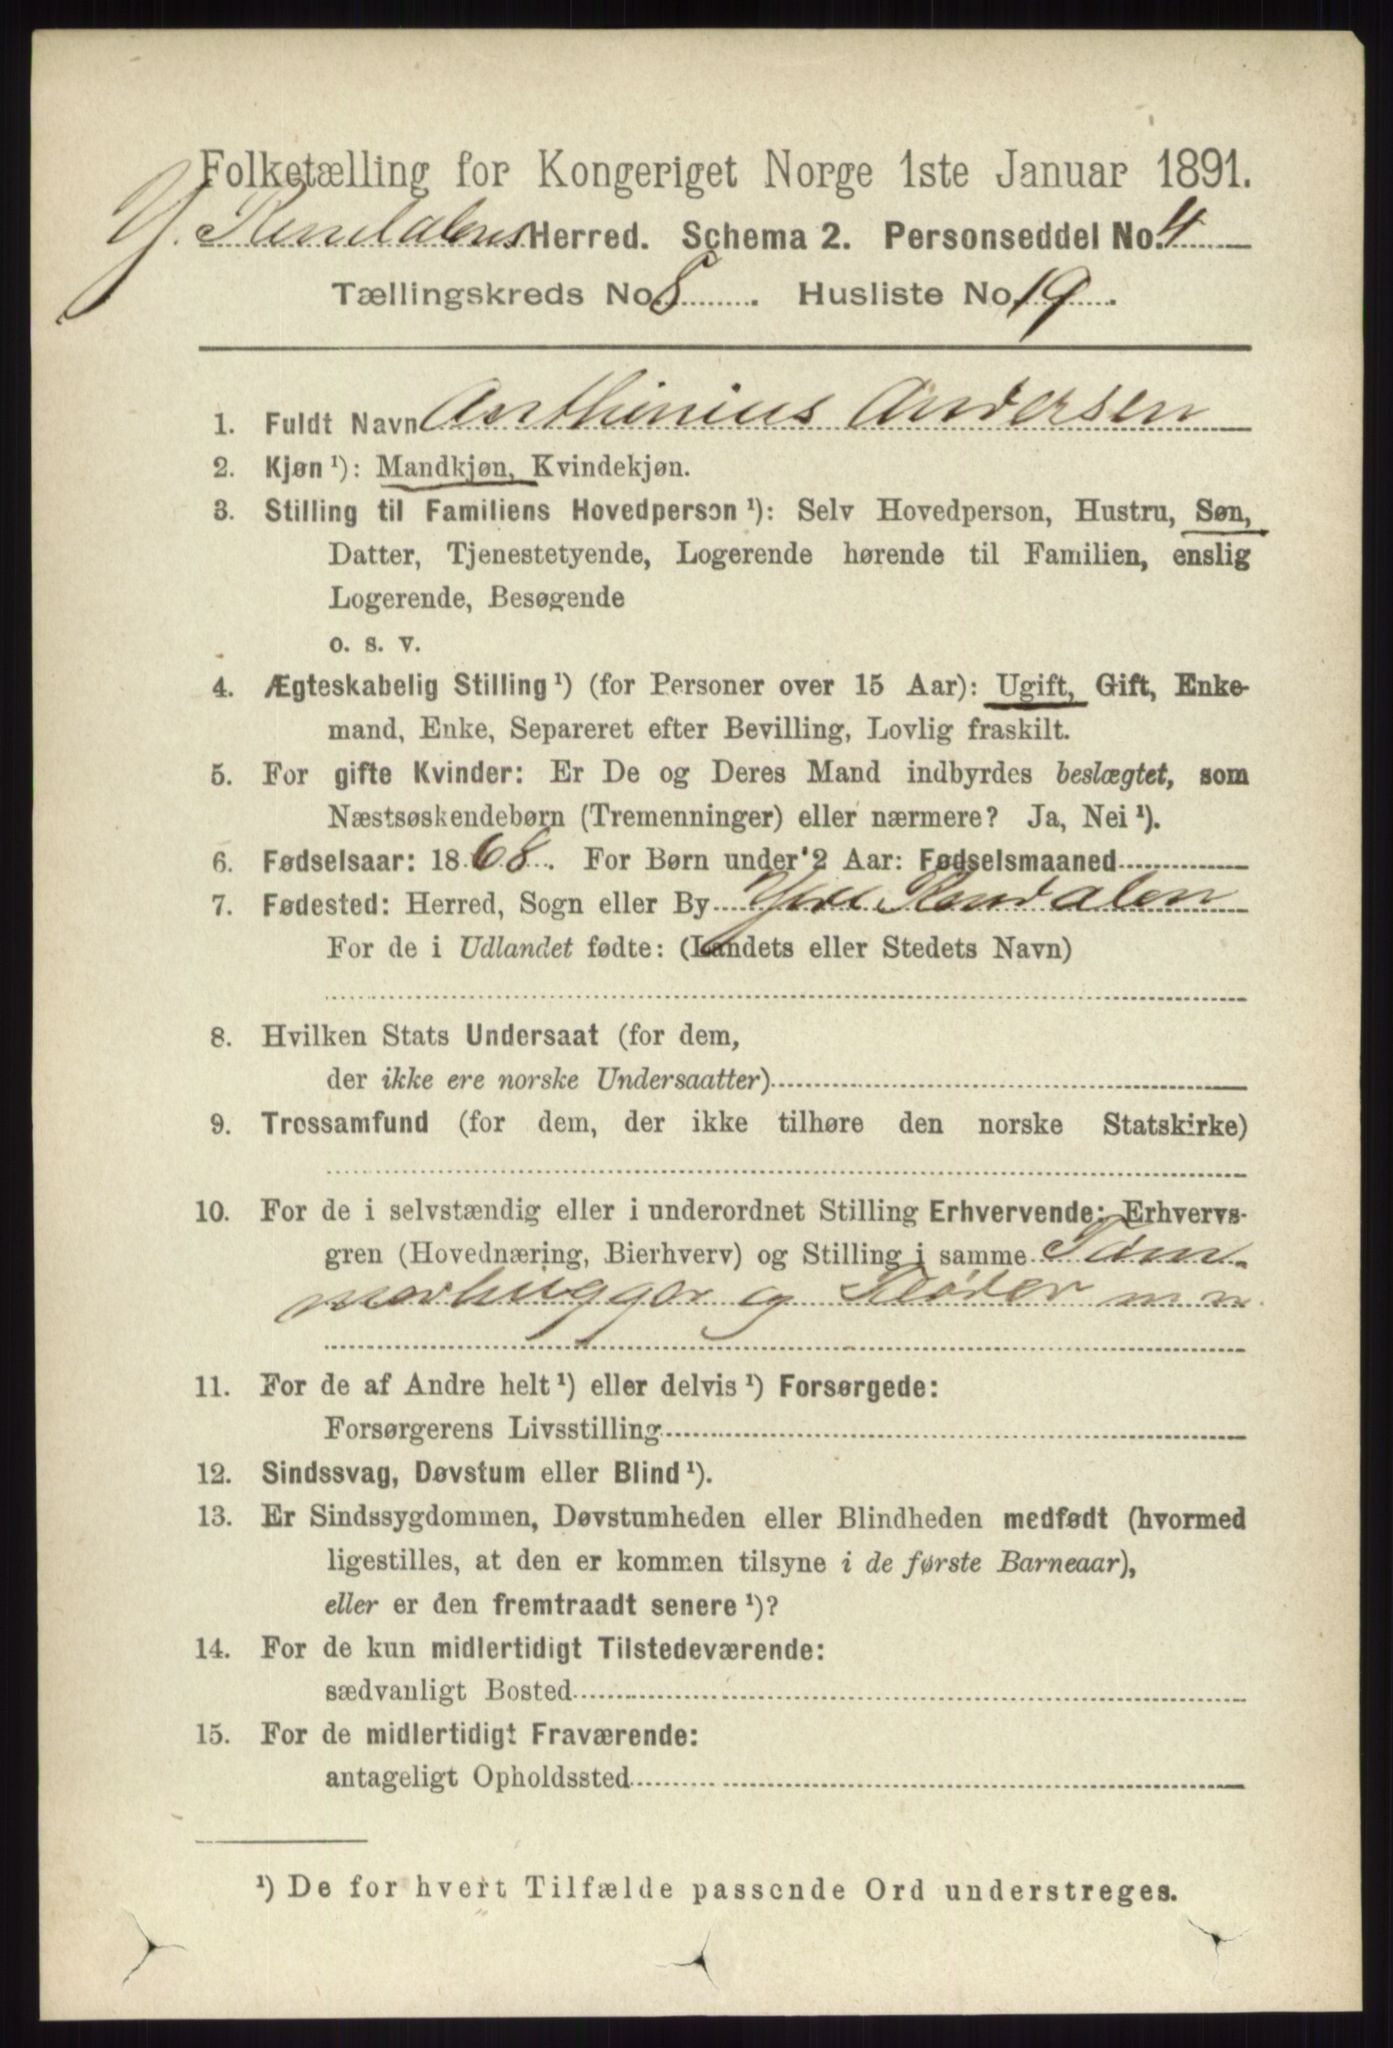 Folketælling for Kongeriget Norge 1ste Januar 1891.
Y. Rendalens Herred. Schema 2. Personseddel No. 4
Tællingskreds No 8. Husliste No 19.
1. Fuldt Navn Anthinius Andersen
2. Kjøn¹): Mandkjøn, Kvindekjøn.
3. Stilling til Familiens Hovedperson¹): Selv Hovedperson, Hustru, Søn,
Datter, Tjenestetyende, Logerende hørende til Familien, enslig
Logerende, Besøgende
o. s. v.
4. Ægteskabelig Stilling¹) (for Personer over 15 Aar): Ugift, Gift, Enke-
mand, Enke, Separeret efter Bevilling, Lovlig fraskilt.
5. For gifte Kvinder: Er De og Deres Mand indbyrdes beslægtet, som
Næstsøskendebørn (Tremenninger) eller nærmere? Ja, Nei¹).
6. Fødselsaar: 1868. For Børn under 2 Aar: Fødselsmaaned
7. Fødested: Herred, Sogn eller By Ytre Rendalen
For de i Udlandet fødte: (Landets eller Stedets Navn)
8. Hvilken Stats Undersaat (for dem,
der ikke ere norske Undersaatter)
9. Trossamfund (for dem, der ikke tilhøre den norske Statskirke)
10. For de i selvstændig eller i underordnet Stilling Erhvervende: Erhvervs-
gren (Hovednæring, Bierhverv) og Stilling i samme Tøm-
merhugger og Fløder m m.
11. For de af Andre helt¹) eller delvis¹) Forsørgede:
Forsørgerens Livsstilling
12. Sindssvag, Døvstum eller Blind¹).
13. Er Sindssygdommen, Døvstumheden eller Blindheden medfødt (hvormed
ligestilles, at den er kommen tilsyne i de første Barneaar),
eller er den fremtraadt senere¹)?
14. For de kun midlertidigt Tilstedeværende:
sædvanligt Bosted
15. For de midlertidigt Fraværende:
antageligt Opholdssted
¹) De for hvert Tilfælde passende Ord understreges.